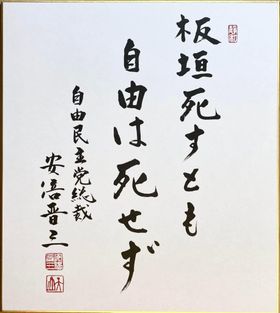 板垣死すとも
自由は死せず
自由民主党総裁
安倍晋三